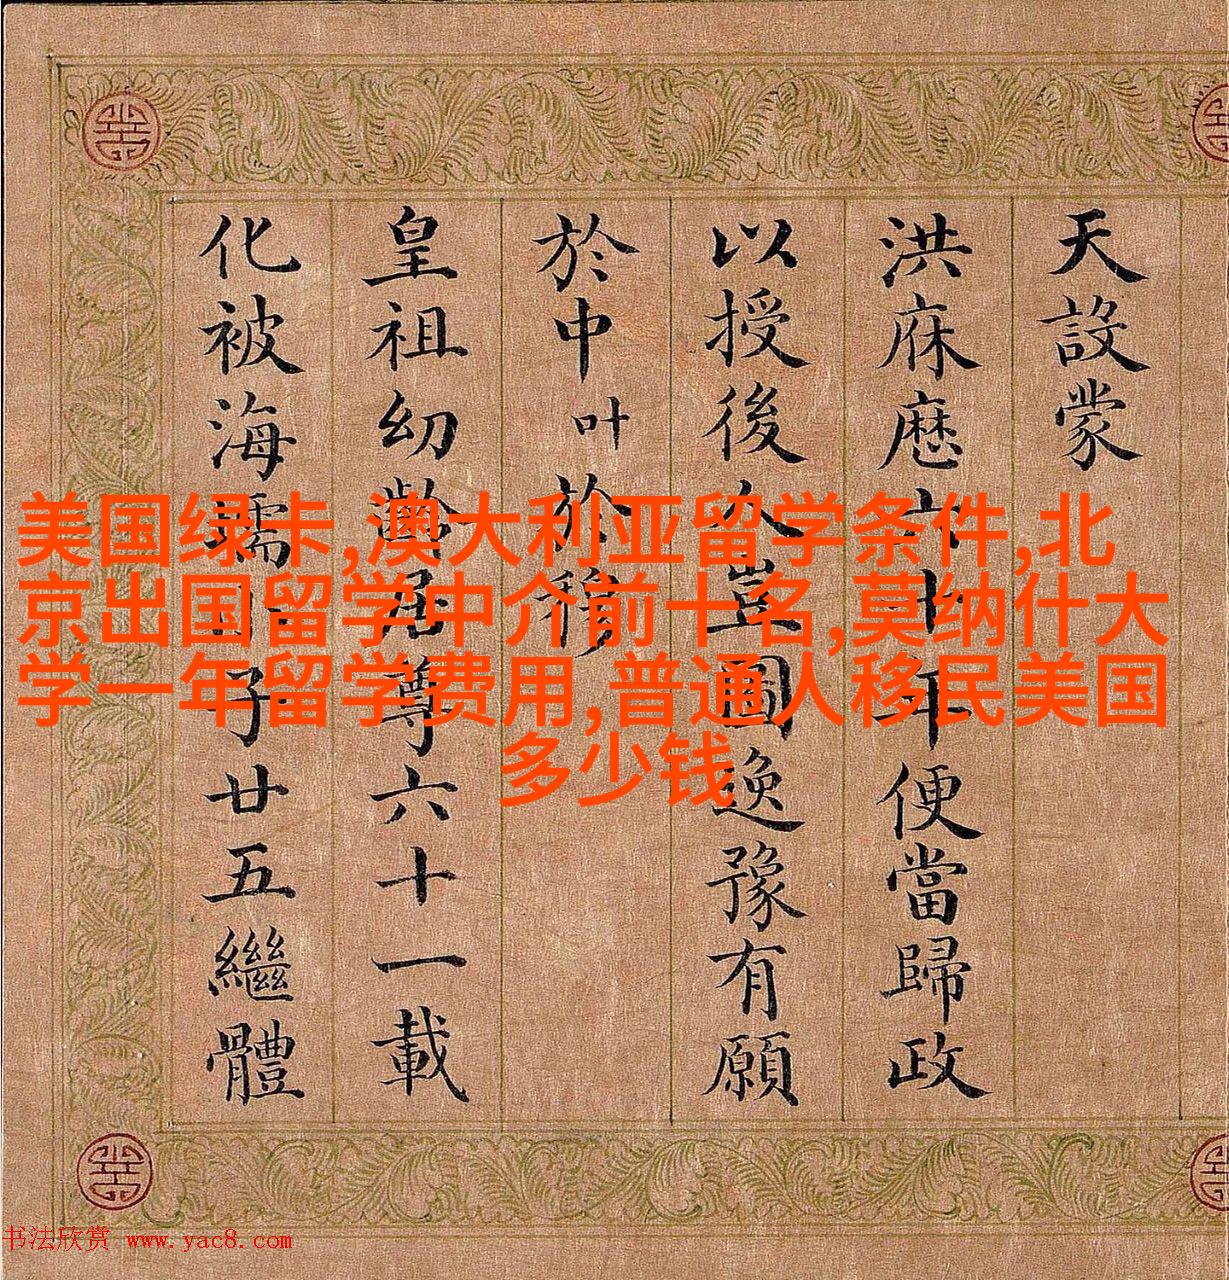 天設蒙
洪庥厯六十年便當歸政
以授後人豈圖逸豫有願
於中叶於穆
皇祖幼齡居尊六十一載
化被海壖予廿五繼體
美国绿卡,澳大利亚留学条件,北
京出国留学中介前十名,莫纳什大
学一年留学费用,普通人移民美国
多少钱
书法欣赏 www.yac8.com